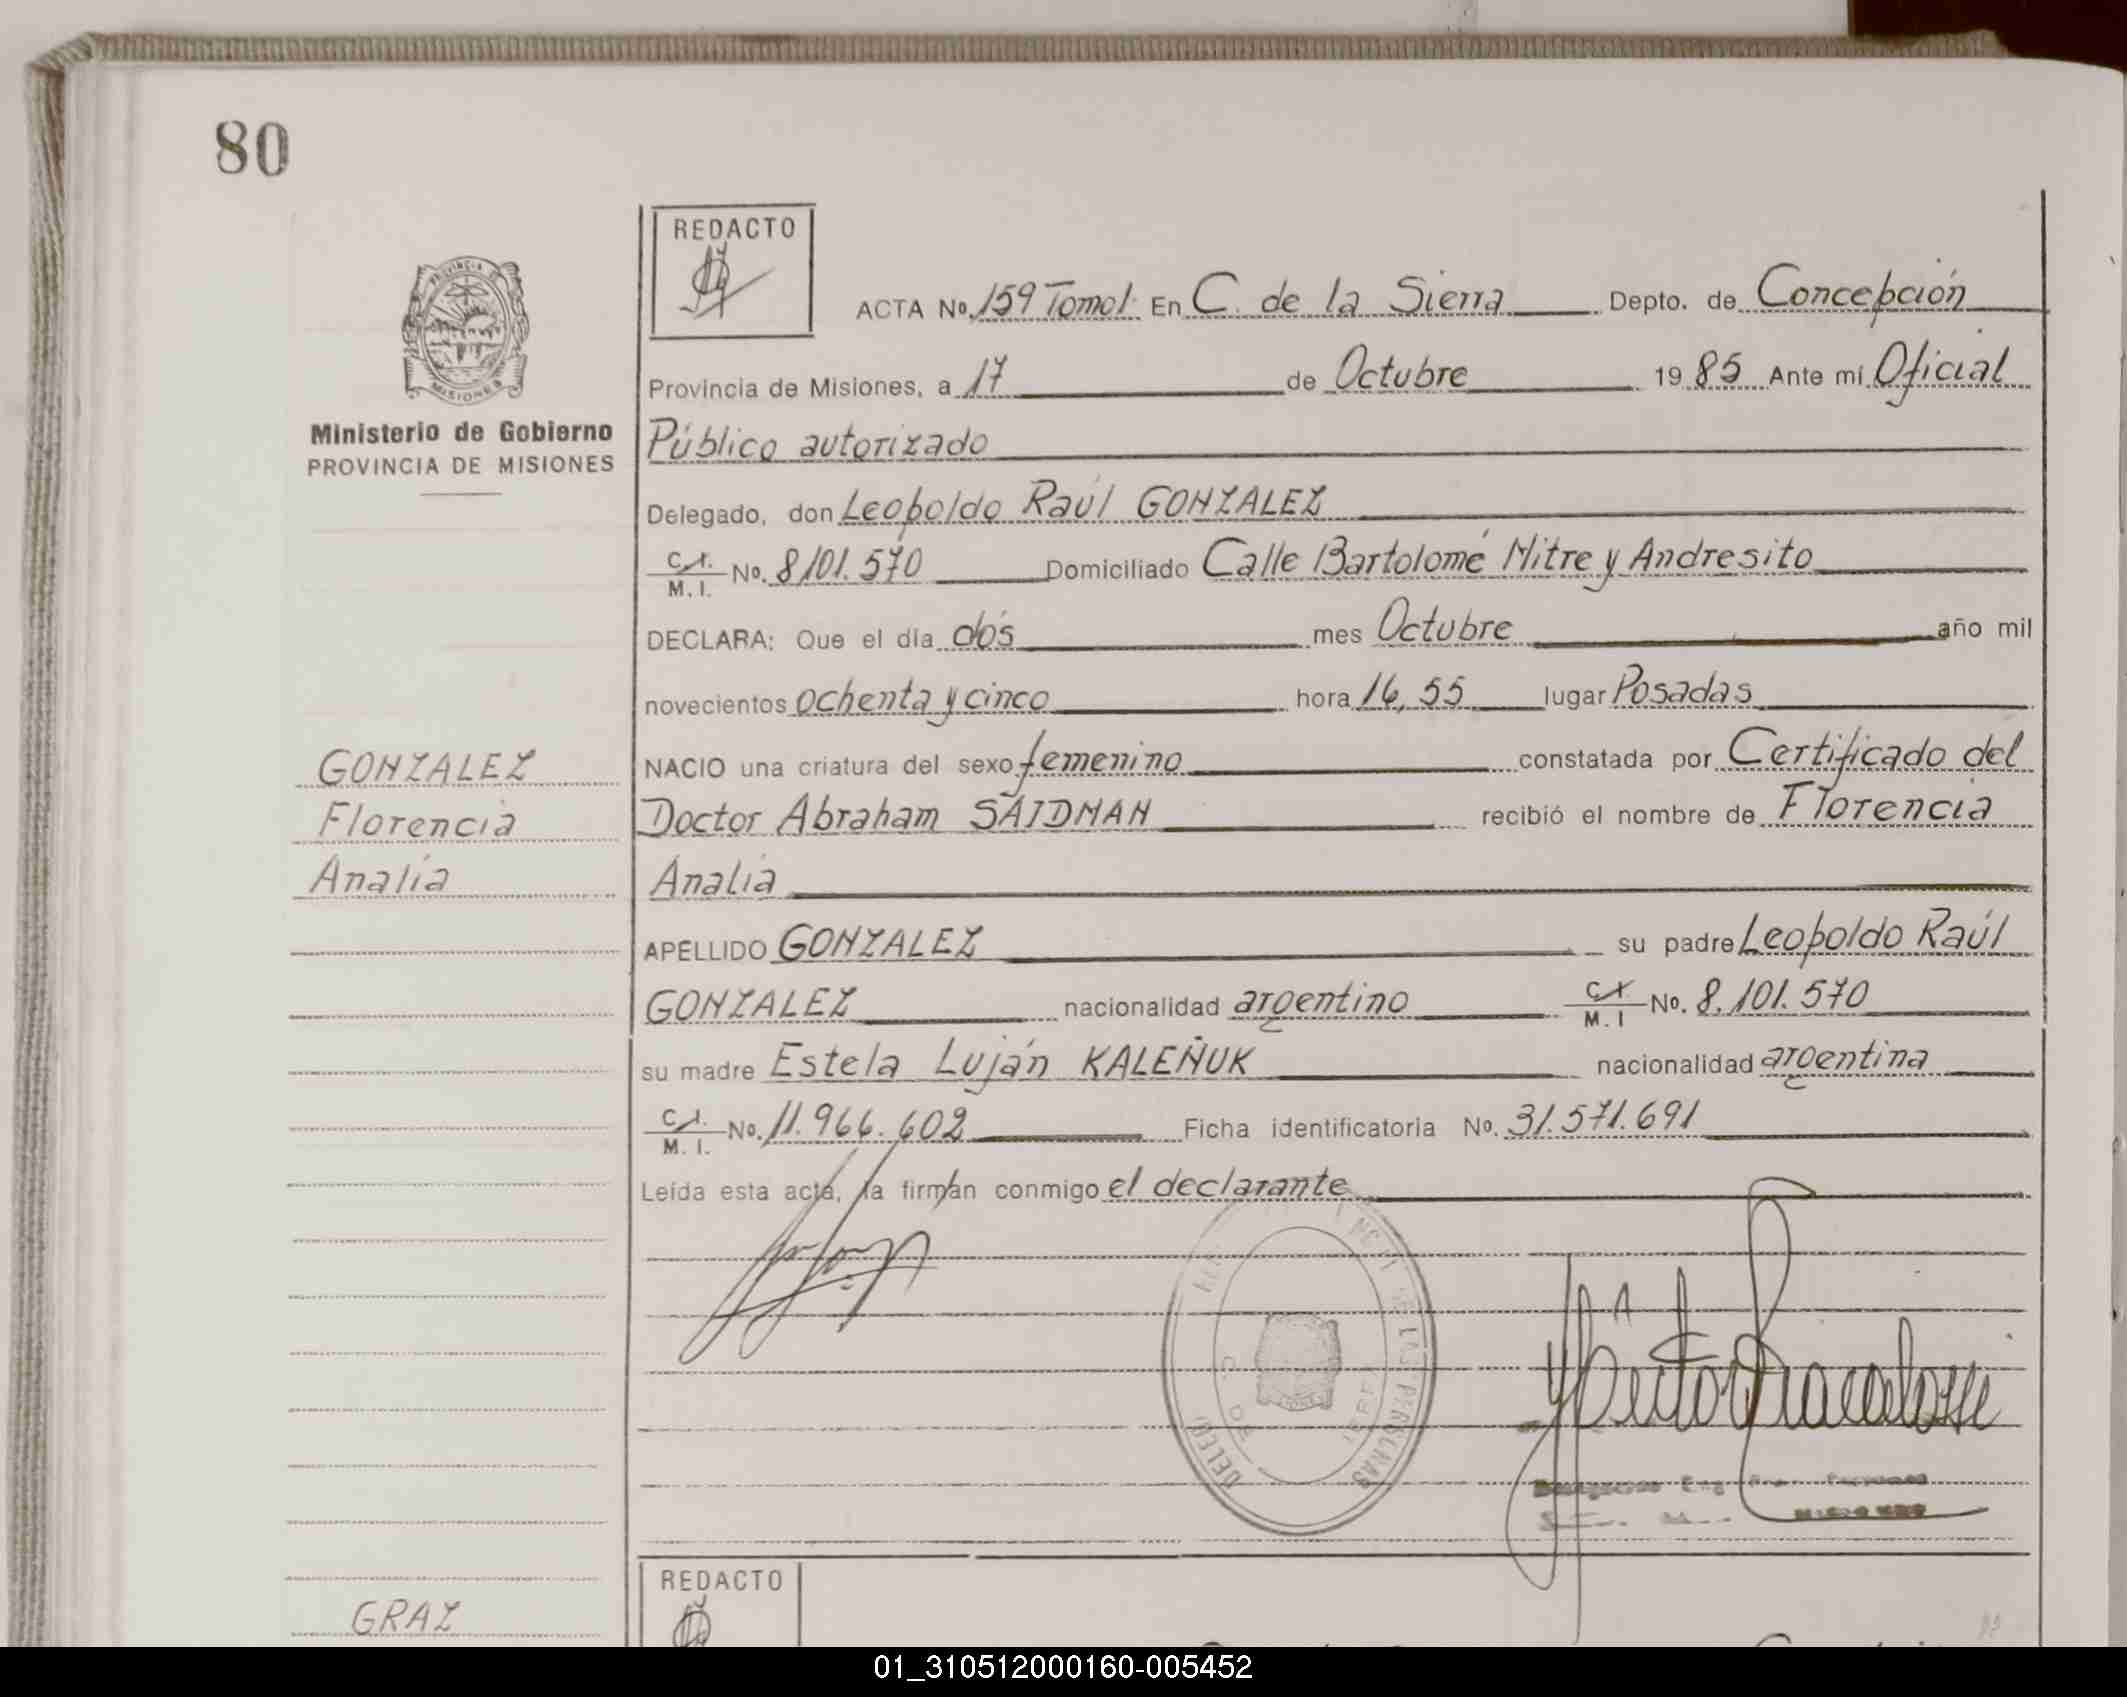 80
REDACTO
ACTA No. 159 Tomo 1. En C. de la Sierra Depto. de Concepción
Provincia de Misiones, a 17 de Octubre 19 85 Ante mí Oficial
Ministerio de Gobierno
PROVINCIA DE MISIONES
Público autorizado
Delegado, don Leopoldo Raúl GONZALEZ
C.I. M. I. No. 8101.570 Domiciliado Calle Bartolomé Mitre y Andresito
DECLARA: Que el día dós mes Octubre año mil
novecientos ochenta y cinco hora 16,55 lugar Posadas
GONZALEZ
NACIO una criatura del sexo femenino constatada por Certificado del
Florencia
Doctor Abraham SAIDMAN recibió el nombre de Florencia
Analía
Analia
APELLIDO GONZALEZ su padre Leopoldo Raúl
GONZALEZ nacionalidad argentino C.I. M. I No. 8.101.570
su madre Estela Luján KALEÑUK nacionalidad argentina
C.I. M. I. No. 11.966.602 Ficha identificatoria No. 31.571.691
Leída esta acta, la firman conmigo el declarante
DE LAS PERSONAS
REDACTO
GRAZ
01_310512000160-005452